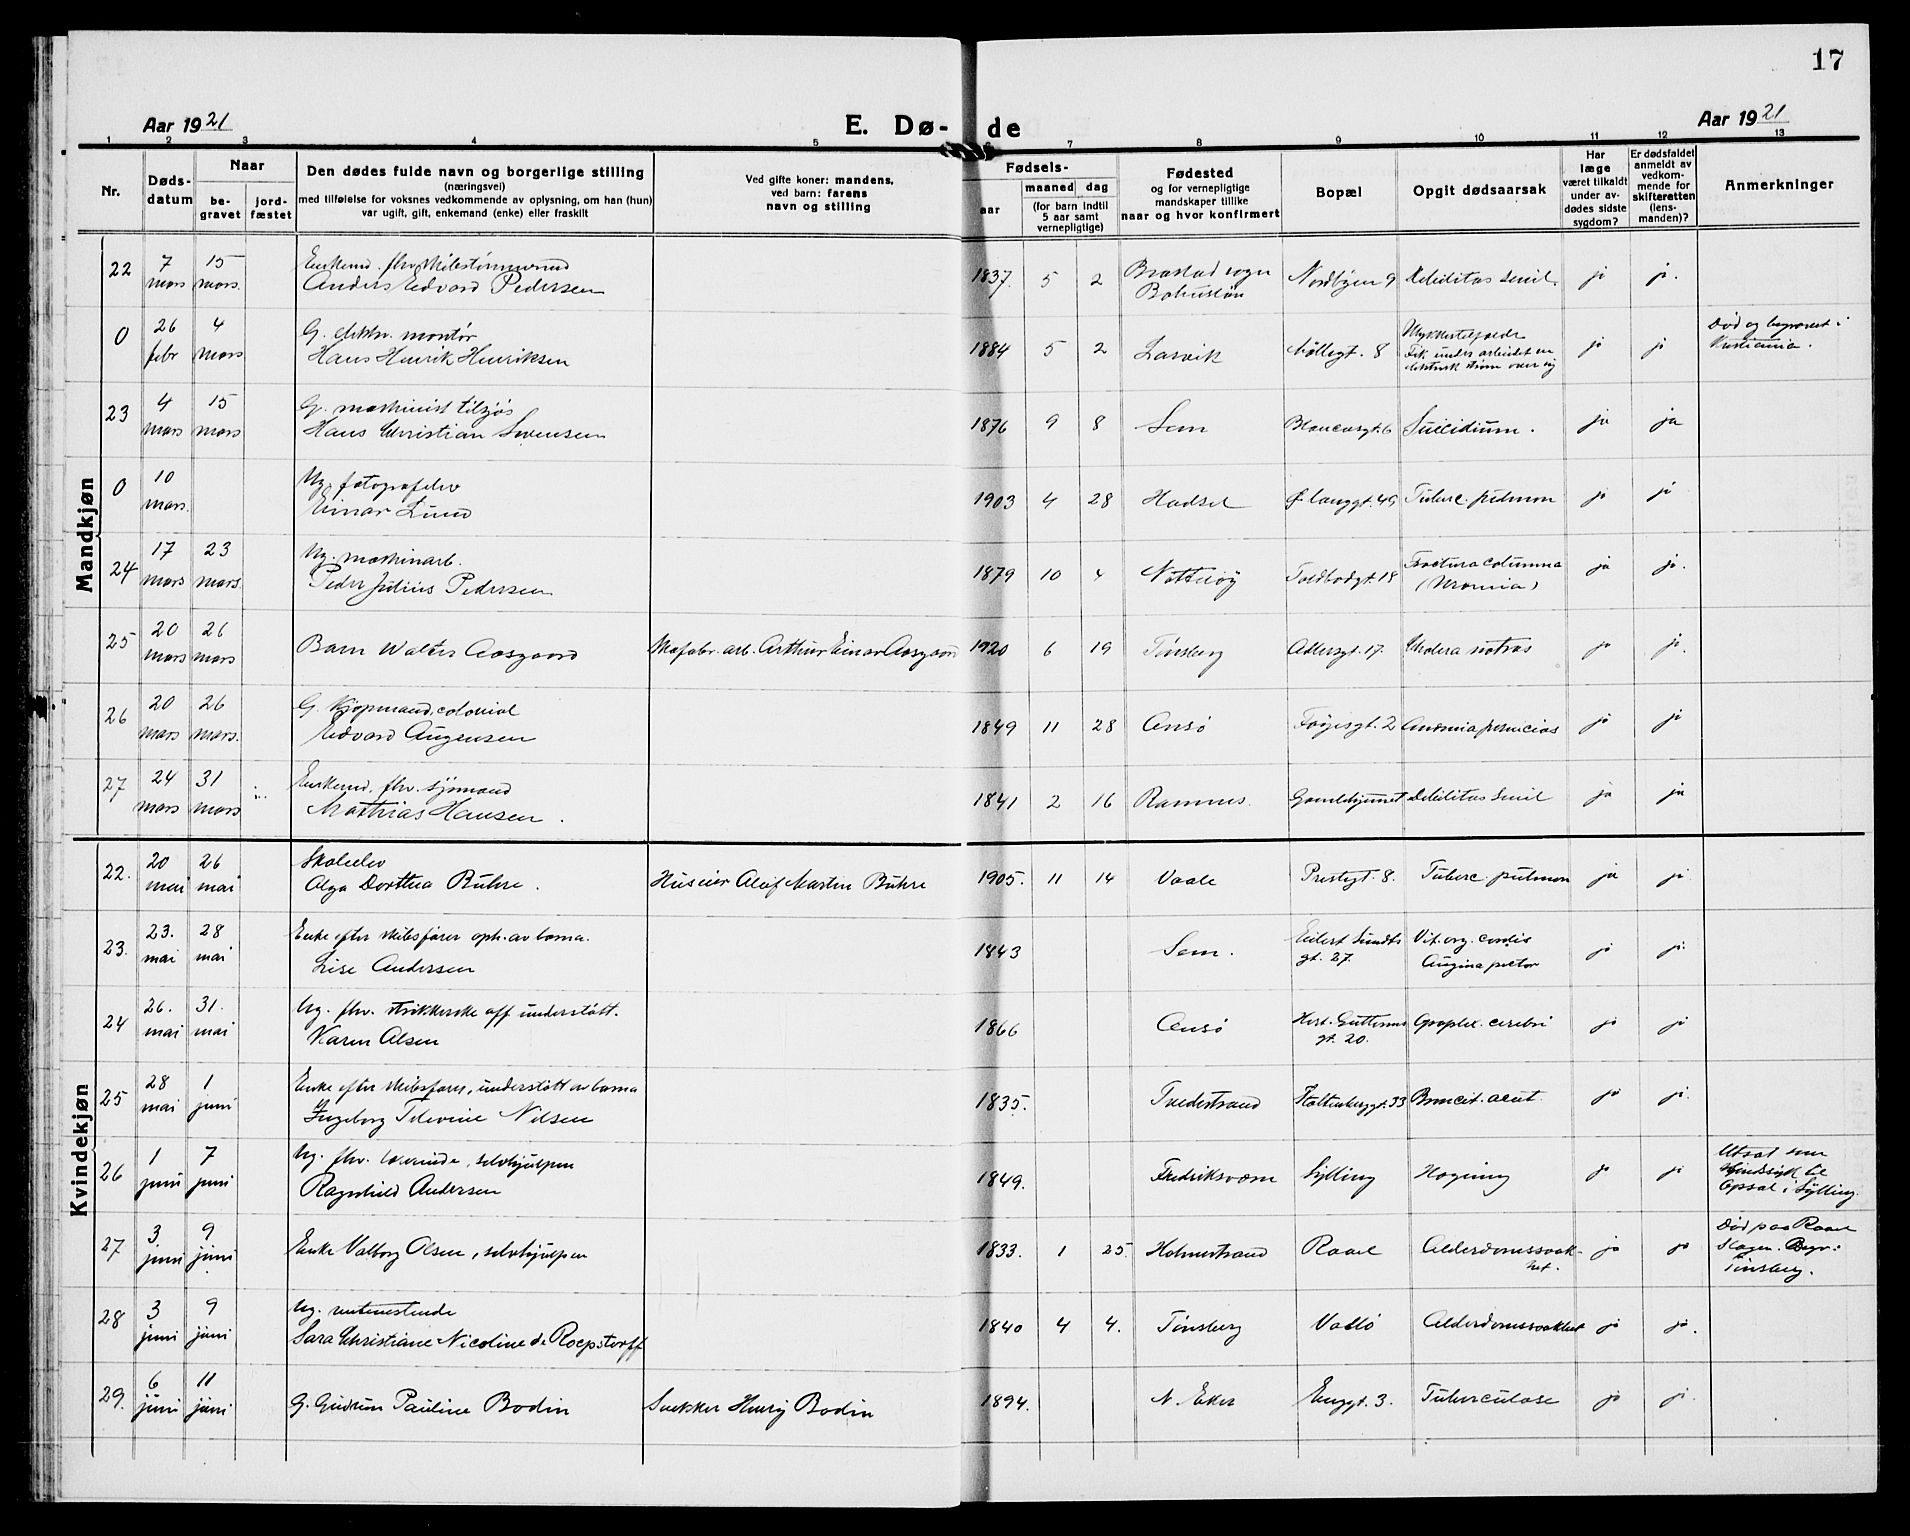 17
Aar 1921
E. Dø- de
Aar 1921
1 2 3 4 5 6 7 8 9 10 11 12 13
Nr.
Døds-
datum
Naar
be-
gravet
jord-
fæstet
Den dødes fulde navn og borgerlige stilling
(næringsvei)
med tilføielse for voksnes vedkommende av oplysning, om han (hun)
var ugift, gift, enkemand (enke) eller fraskilt
Ved gifte koner: mandens,
ved barn: farens
navn og stilling
Fødsels-
aar
maaned
dag
(for barn indtil
5 aar samt
vernepligtige)
Fødested
og for vernepligtige
mandskaper tillike
naar og hvor konfirmert
Bopæl
Opgit dødsaarsak
Har
læge
været tilkaldt
under av-
dødes sidste
sygdom?
Er dødsfaldet
anmeldt av
vedkom-
mende for
skifteretten
(lens-
manden)?
Anmerkninger
Mandkjøn
22 7 mars 15 mars.
Enkemd. fhv.
Anders Edvard Pedersen
1837. 5 2 Brastad sogn Bohuslän Nordbyen 9 Debilitas senil. ja ja.
0 26 febr 4 mars
G. elektr. montør
Hans Henrik Henriksen
1884 5 2 Larvik Møllegt. 8 Ulykkestilfælde Fik under arbeidet en elektrisk strøm over sig ja ja Død og begravet i Kristiania.
23 4 mars 15 mars
G. maskinist tilsjøs
Hans Christian Svensen
1876 9 8 Sem 6 Suicidium. ja ja
0 10 mars.
Ug. fotografelev
Einar Lund
1903 4 28 Hadsel Ø. Langgt. 49 Tuberc. pulmon ja ja
24 17 mars 23 mars.
Ug. maskinarb.
Peder Julius Pedersen
1879 10 4 Nøtterøy Toldbodgt. 18 Fractura columna (Uræmia) ja ja.
25 20 mars 26 mars
Barn Walter Aasgaard
arb. Arthur Einar Aasgaard
1920 6 19 Tønsberg Adlersgt. 17. Cholera nostras ja ja.
26 20 mars 26 mars.
G. Kjøpmand, colonial
Edvard Augensen
1849 11 28 Ansø 2 Anæmia pernicios ja ja
27 24 mars 31 mars
Enkemd. fhv. sjømand
Mathias Hansen.
1841 2 16 Ramnes. Gamlehjemmet Debilitas senil ja ja
Kvindekjøn
22. 20 mai 26 mai
Skoleelev
Olga Dorthea Buhre.
Huseier Olaf Martin Buhre
1905. 11 14 Vaale Prestegt. 8. Tuberc. pulmon ja ja
23. 23. mai 28 mai
Enke efter skibsfører oph. av barna.
Lise Andersen
1843 Sem. Eilert Sundts gt. 27. Vit. org. cordis Angina pector ja ja
24 26. mai 31. mai
Ug. fhv. strikkerske off understøtt.
Karen Olsen
1866 Ansø gt. 20. Apoplex. cerebri ja ja
25 28 mai 1 juni
Enke efter skibsfører, understøtt av barna
Ingeborg Televine Nilsen
1835. Tvedestrand Stoltenberggt. 33 Broncit. acut. ja ja.
26 1 juni 7 juni
Ug. fhv. lærerinde, selvhjulpen
Ragnhild Andersen
1849. Fredriksværn Sylling Hogning ja ja Utsat som sindssyk til Opsal i Sylling.
27 3 juni 9 juni
Enke Valborg Olsen, selvhjulpen
1833. 1 25. Holmestrand Raael Alderdomssvakhet. ja ja Død paa Raael Slagen. Begr. i Tønsberg.
28 3 juni 9 juni
Ug. rentenistinde
Sara Christiane Nicoline de Roepstorff
1840 4 4. Tønsberg Valø Alderdomssvakhet ja ja.
29. 6 juni 11 juni
G. Gudrun Pauline Bodin
Snekker Henry Bodin
1894. N. Eker Enggt. 3. Tuberculose ja ja.